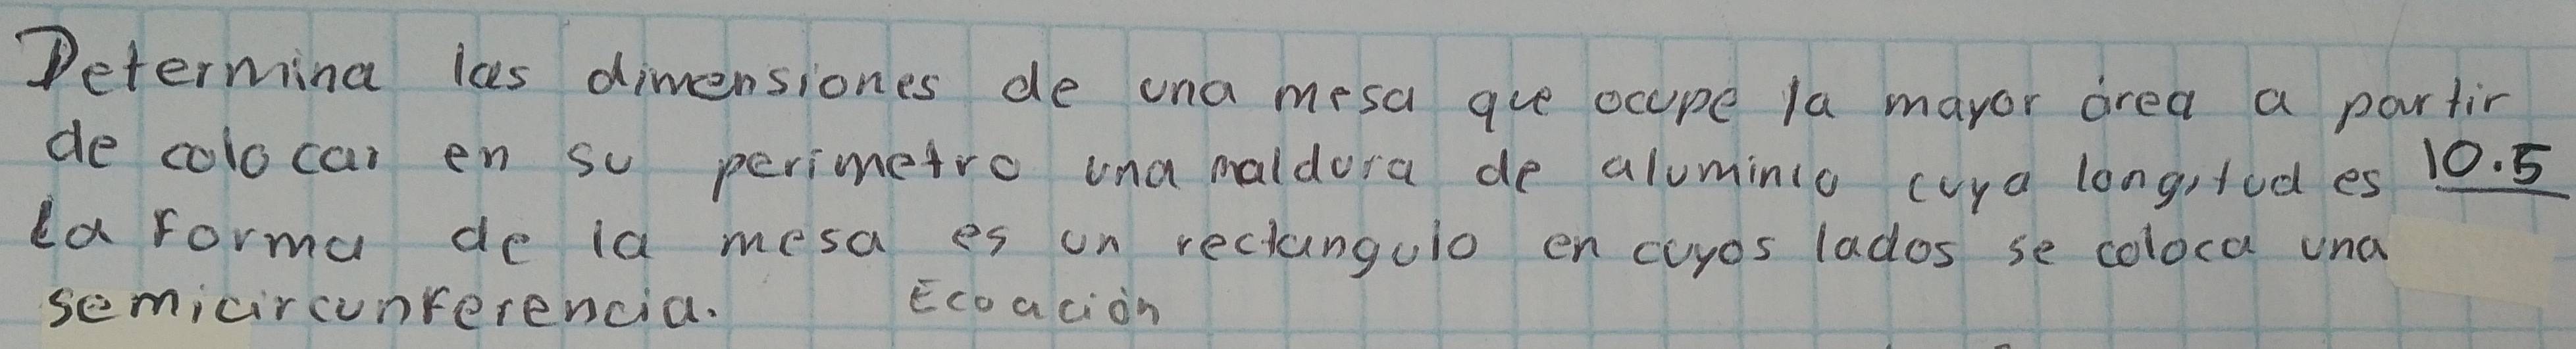 Determina las dimensiones de una mesa que ocupe la mayor área a partir
de colocar en su perimetro una maldura de aluminio cuya longitud es 10.5
La Forma de la mesa es un rectangulo en cuyos lados se coloca una
semicircunferencia. Ecoación